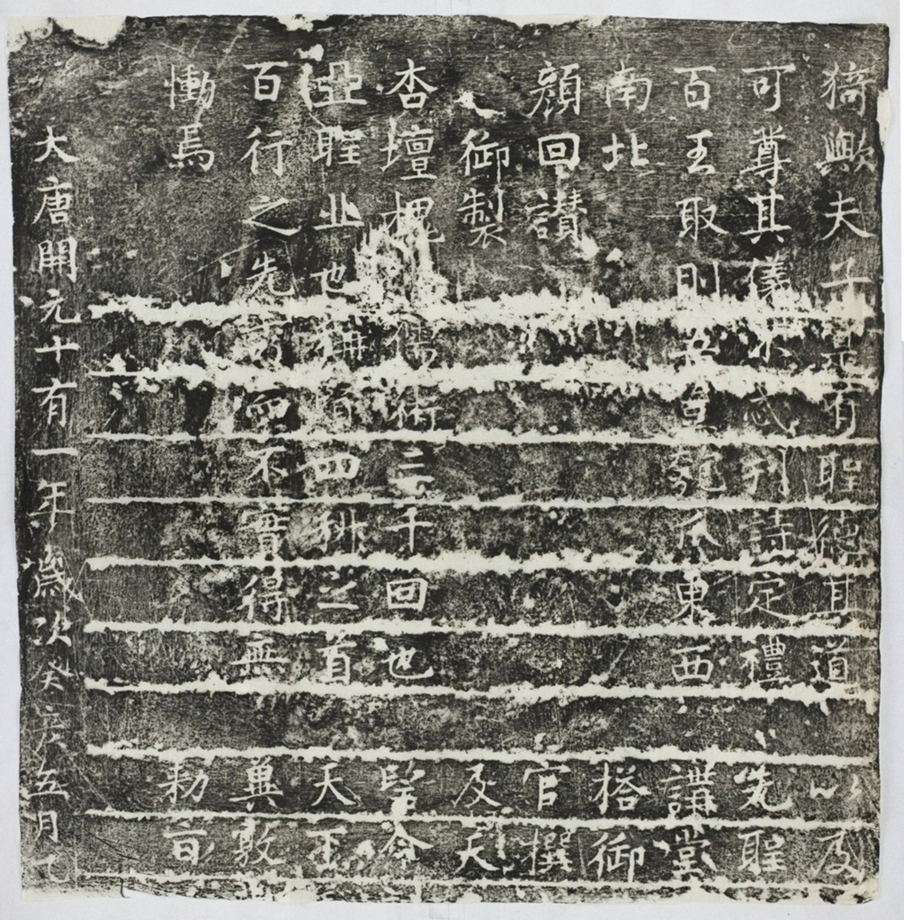 猗歟夫子實有聖德其道 以及
可尊其儀不忒刊詩定禮 先聖
百王取則吾豈匏瓜東西 講堂
南北 搭御
顏回讚 官撰
御製 及天
杏壇槐儒術三千回也 皆令
亞聖丘也稱賢四科之首 天
百行之先秀而不實得無 冀敦
慟焉 勑旨
大唐開元十有一年歲次癸亥五月乙